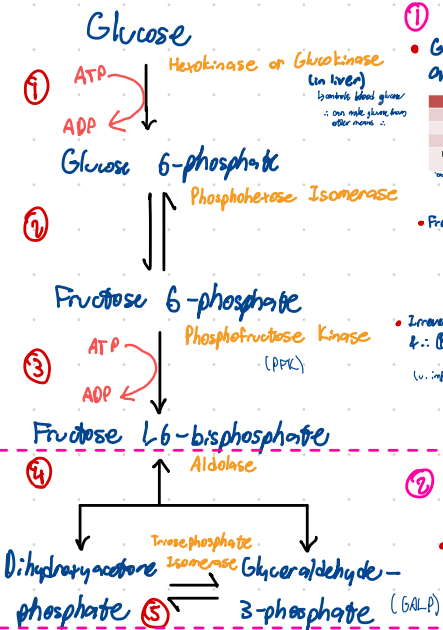 ①
Glucose
Hexokinase or Glucokinase
(in liver)
↳controls blood glucose
∴ can make glucose from
other means ∴
①
ATP
ADP
Glucose 6-phosphate
②
Phosphohexose Isomerase
Fructose 6-phosphate
③
ATP
ADP
Phosphofructose Kinase
(PFK)
Fructose 1,6-bisphosphate
④
Aldolase
②
Dihydroxyacetone
phosphate
Triosephosphate
Isomerase
⑤
Glyceraldehyde-
3-phosphate
(GALP)